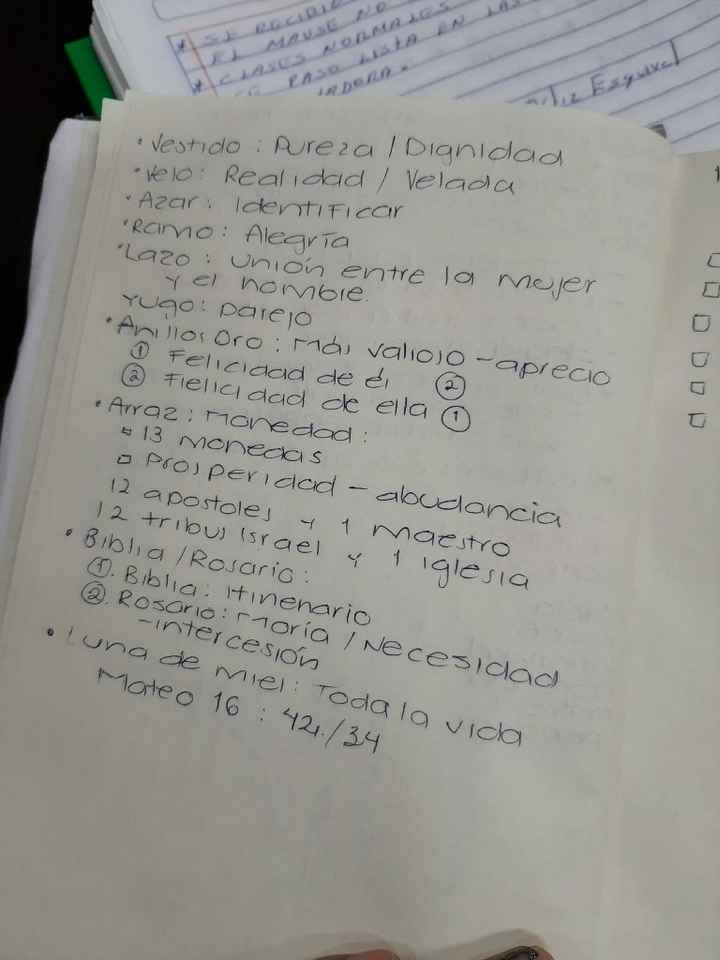 * SE
EL MAUSE NO
* CLASES NORMALES
SE PASO LISTA EN LAS
Esquivel
• Vestido : Pureza / Dignidad
• Velo : Realidad / Velada
• Azar : Identificar
• Ramo : Alegría
• Lazo : Unión entre la mujer
y el hombre.
Yugo : parejo
• Anillos Oro : más valioso - aprecio
① Felicidad de él ②
② Fielicidad de ella ①
• Arraz : Monedad :
13 monedas
▫ Prosperidad - abudancia
12 apostoles y 1 Maestro
12 tribus Israel y 1 iglesia
• Biblia / Rosario :
①. Biblia : Itinenario
②. Rosario : María / Necesidad
- intercesión
• Luna de miel : Toda la vida
Mateo 16 : 42. / 34